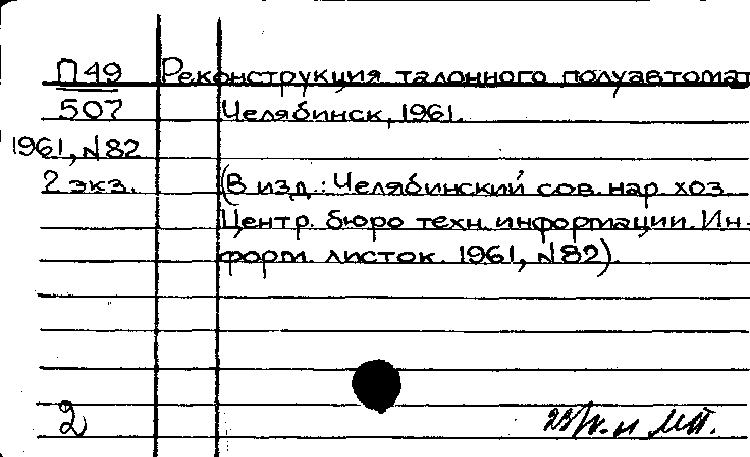 П49 Реконструкция талонного полуавтомат
507 Челябинск, 1961.
1961, №82
2 экз. (В изд.: Челябинский сов. нар. хоз.
Центр. бюро техн. информации. Ин-
форм. листок. 1961, №82).
2